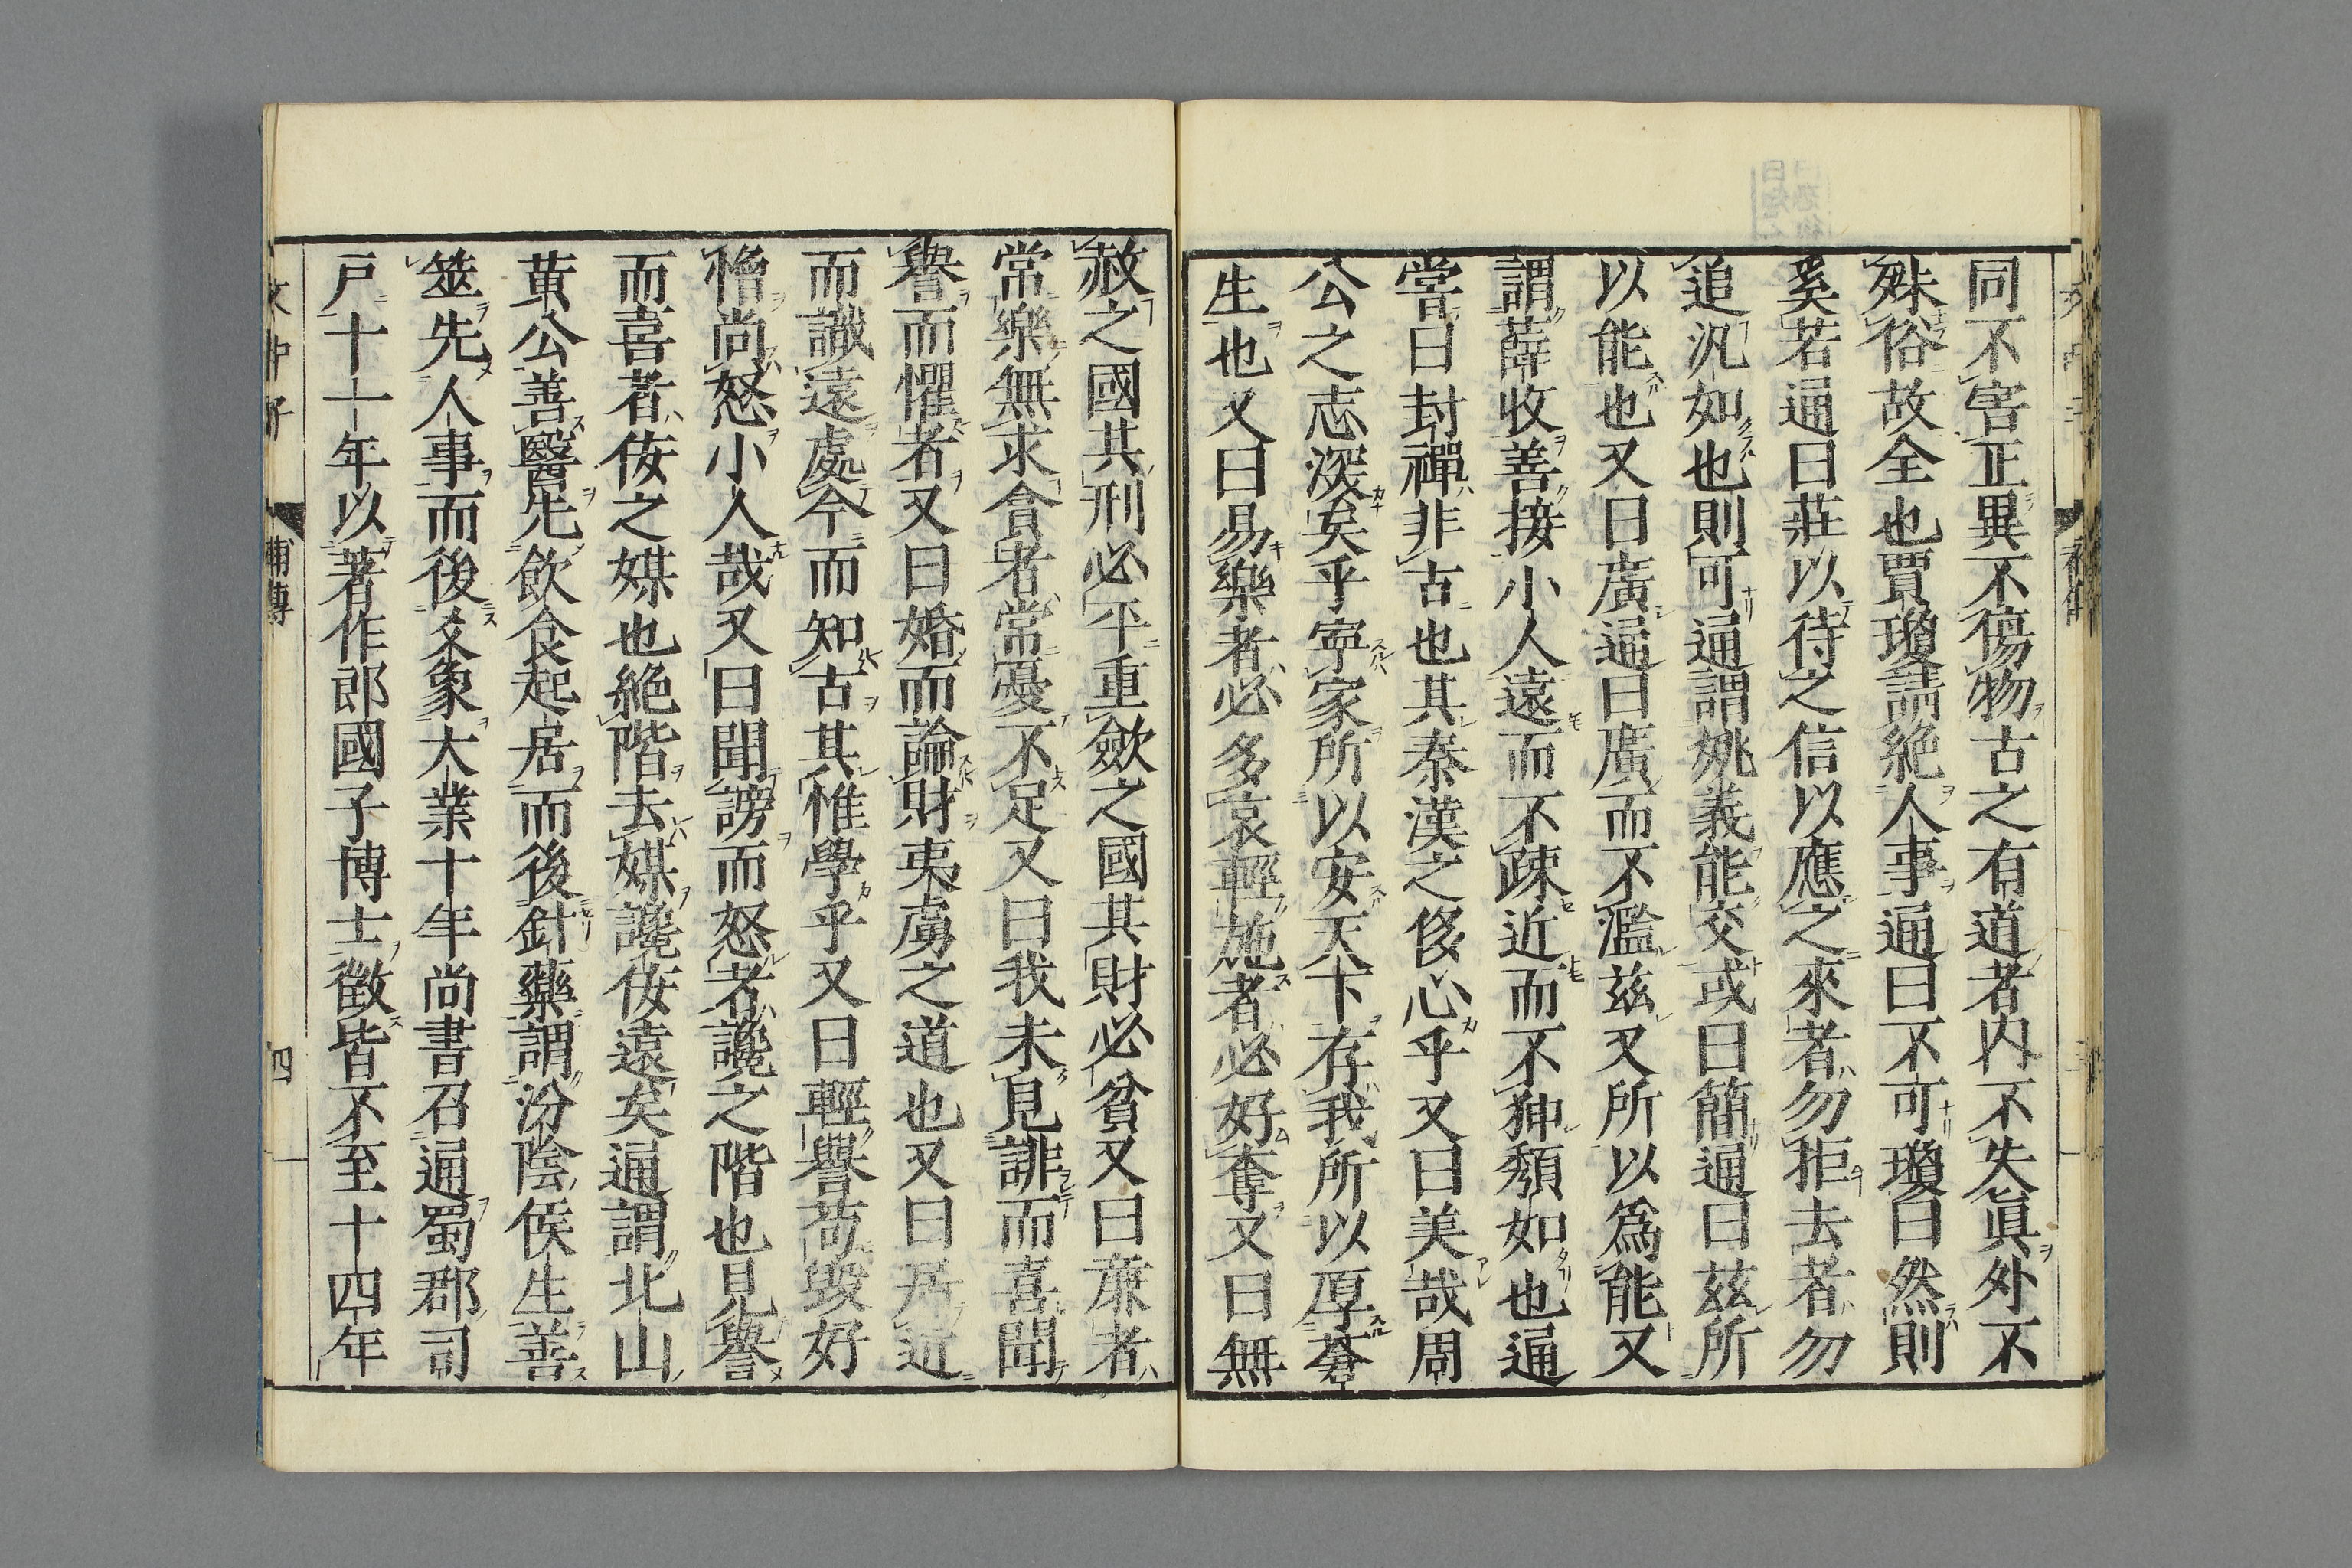 同不害正異不傷物古之有道者内不失眞外不
殊俗故全也賈瓊請絶人事通曰不可瓊曰然則
奚若通曰莊以待之信以應之來者勿拒去者勿
追汎如也則可通謂姚義能交或曰簡通曰兹所
以能也又曰廣通曰廣而不濫兹又所以爲能又
謂薛收善接小人遠而不疎近而不狎頽如也通
嘗曰封禪非古也其秦漢之侈心乎又曰美哉周
公之志深矣乎寧家所以安天下存我所以厚蒼
生也又曰易樂者必多哀輕施者必好奪又曰無
赦之國其刑必平重斂之國其財必貧又曰廉者
常樂無求貪者常憂不足又曰我未見誹而喜聞
譽而懼者又曰婚而論財夷虜之道也又曰乃近
而譏遠處今而知古其惟學乎又曰輕譽苟毀好
憎尚怒小人哉又曰聞謗而怒者讒之階也見譽
而喜者佞之媒也絶階去媒讒佞遠矣通謂北山
黄公善醫先飲食起居而後針藥謂汾陰侯生善
筮先人事而後爻象大業十年尚書召通蜀郡司
戸十一年以著作郎國子博士徴皆不至十四年
文中子
補傳
四